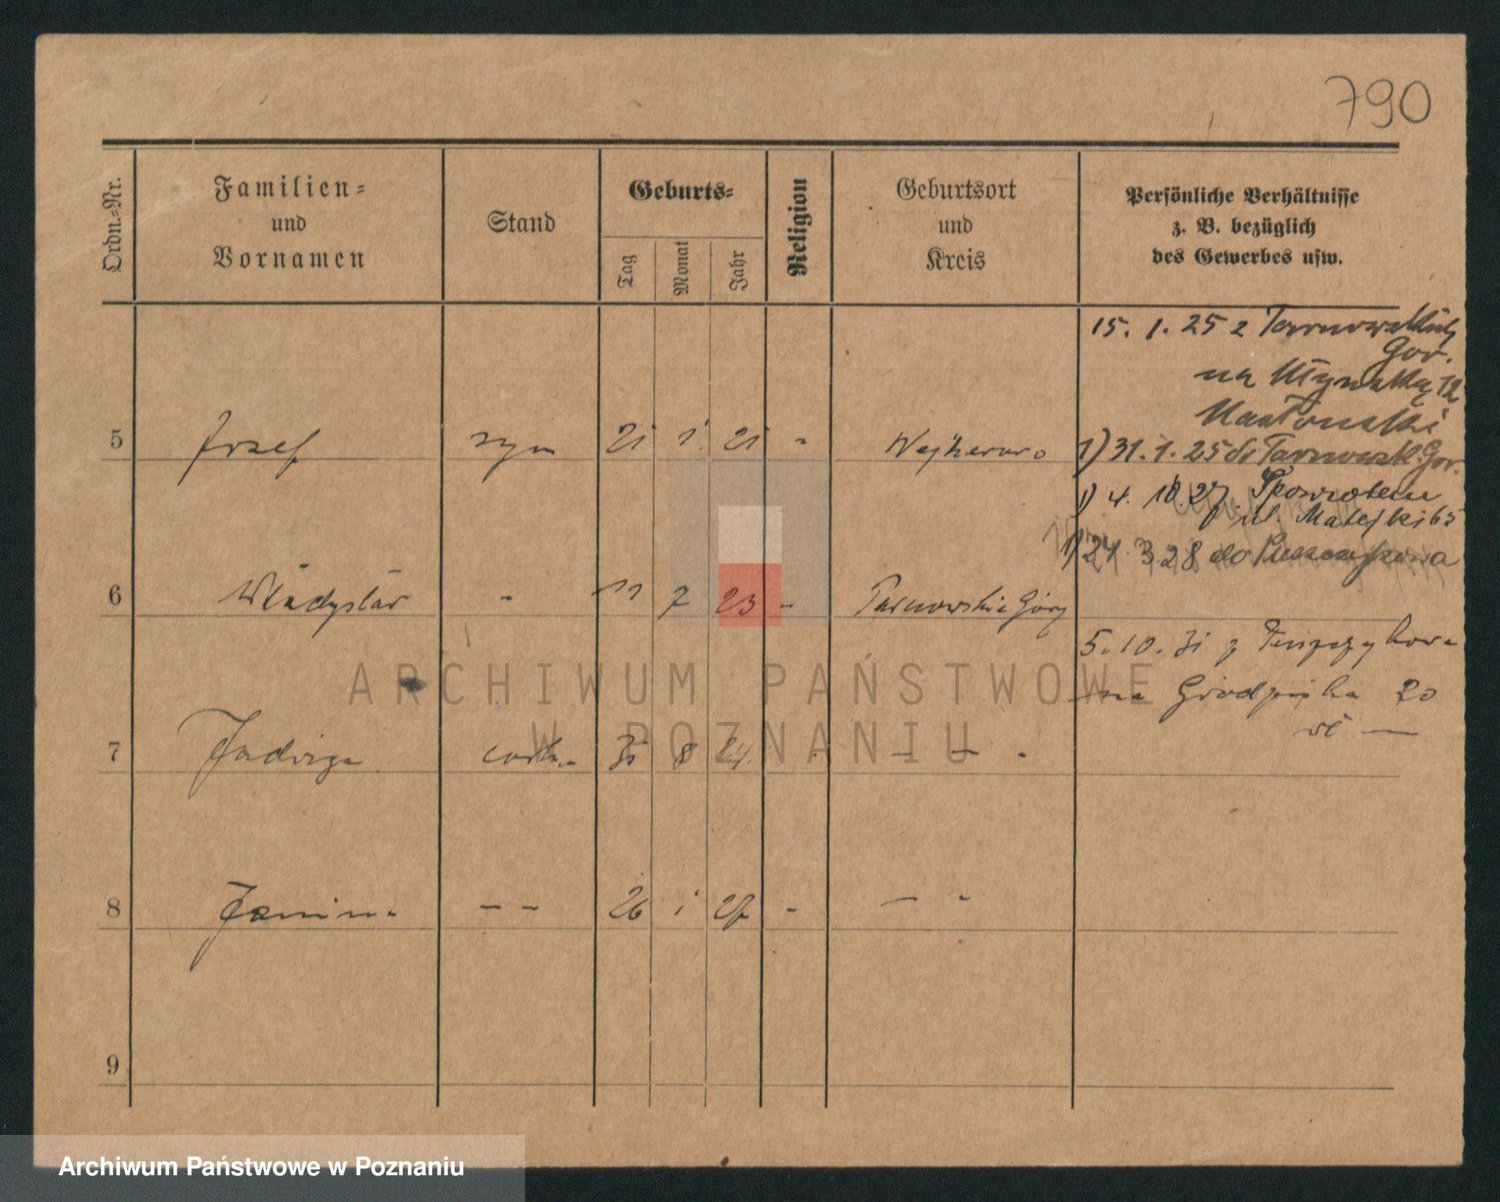 790
Ordn.-Nr.
Familien-
und
Vornamen
Stand
Geburts-
Tag
Monat
Jahr
Religion
Geburtsort
und
Kreis
Persönliche Verhältnisse
z. B. bezüglich
des Gewerbes usw.
15. 1. 25 z Tarnowskich
Gór.
na
12
5 Józef syn 21 1 21 Wejherowo
1) 31. 1. 25 do Tarnowsk. Gór.
1) 4. 10. 27 Spowrotem
ul. Matejki 65
1) 24. 3 28 do
6 Władysław - 11 7 23 - Tarnowskie Góry
5. 10. 31 z
na 20
7 Jadwiga 8 24
8 Janina - - 26 1 27 - - -
9
ARCHIWUM PAŃSTWOWE
W POZNANIU
Archiwum Państwowe w Poznaniu